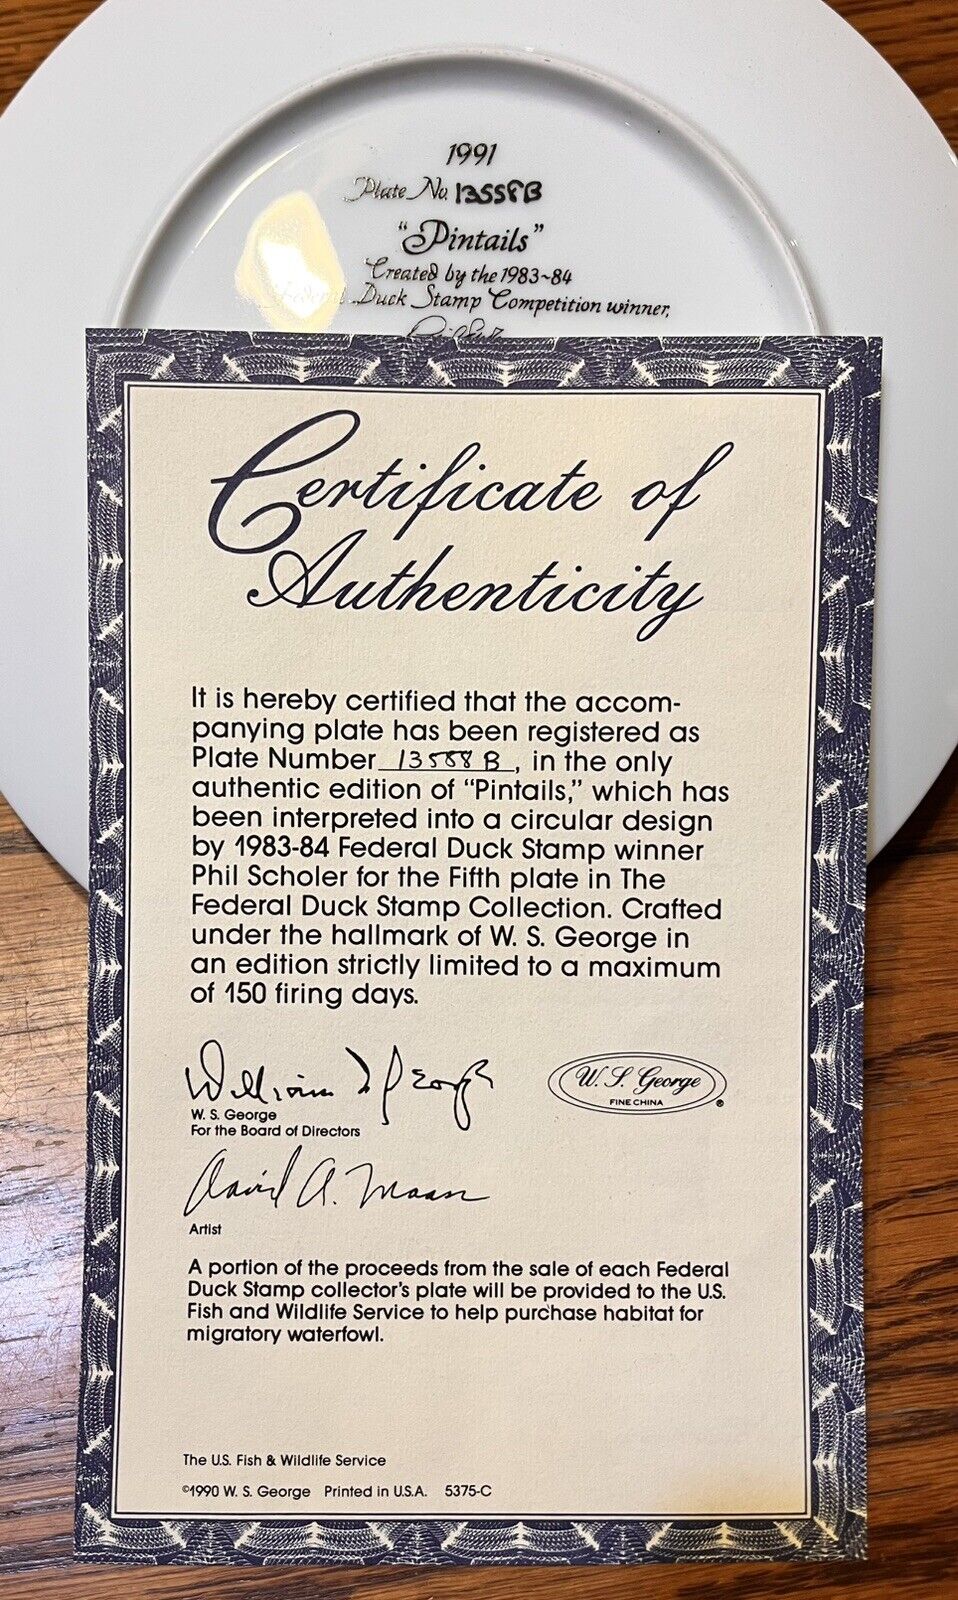 1991
Plate No. 13558B
"Pintails"
Created by the 1983~84
Federal Duck Stamp Competition winner,
Certificate of
Authenticity
It is hereby certified that the accom-
panying plate has been registered as
Plate Number 13588 B, in the only
authentic edition of "Pintails," which has
been interpreted into a circular design
by 1983-84 Federal Duck Stamp winner
Phil Scholer for the Fifth plate in The
Federal Duck Stamp Collection. Crafted
under the hallmark of W. S. George in
an edition strictly limited to a maximum
of 150 firing days.
William S George
W. S. George
For the Board of Directors
W. S. George
FINE CHINA
®
David A. Maass
Artist
A portion of the proceeds from the sale of each Federal
Duck Stamp collector's plate will be provided to the U.S.
Fish and Wildlife Service to help purchase habitat for
migratory waterfowl.
The U.S. Fish & Wildlife Service
©1990 W. S. George Printed in U.S.A. 5375-C